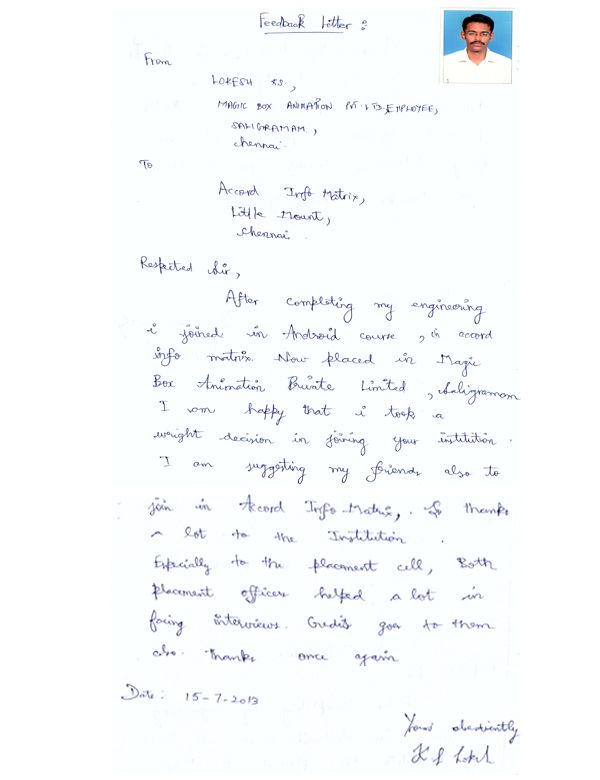 Feedback Letter :
From
LOKESH K.S.,
MAGIC BOX ANIMATION PVT. LTD. EMPLOYEE,
SALIGRAMAM,
chennai.
To
Accord Info Matrix,
Little Mount,
chennai.
Respected Sir,
After completing my engineering
i joined in Android course, in accord
info matrix. Now placed in Magic
Box Animation Private Limited, Saligramam
I am happy that i took a
wright decision in joining your institution.
I am suggesting my friends also to
join in Accord Info Matrix,. So thanks
a lot to the Institution.
Especially to the placement cell, Both
placement officers helped a lot in
facing interviews. Credits goes to them
also. Thanks once again
Date: 15-7-2013
Yours obediently
K S Lokesh